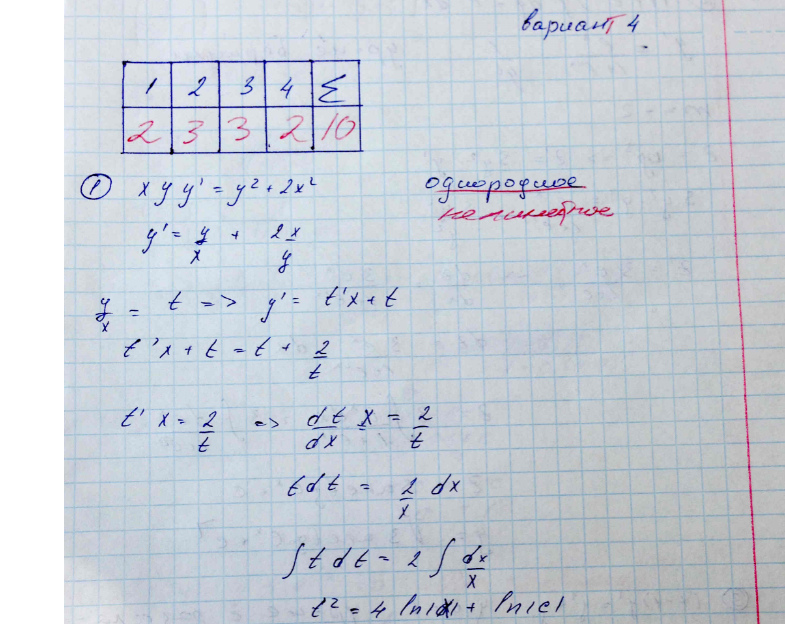 вариант 4
1 2 3 4 Σ
2 3 3 2 10
① x y y' = y² + 2x² однородное
нелинейное
y' = y/x + 2x/y
y/x = t => y' = t'x + t
t'x + t = t + 2/t
t' x = 2/t => dt/dx x = 2/t
t dt = 2/x dx
∫ t dt = 2 ∫ dx/x
t² = 4 ln|x| + ln|c|